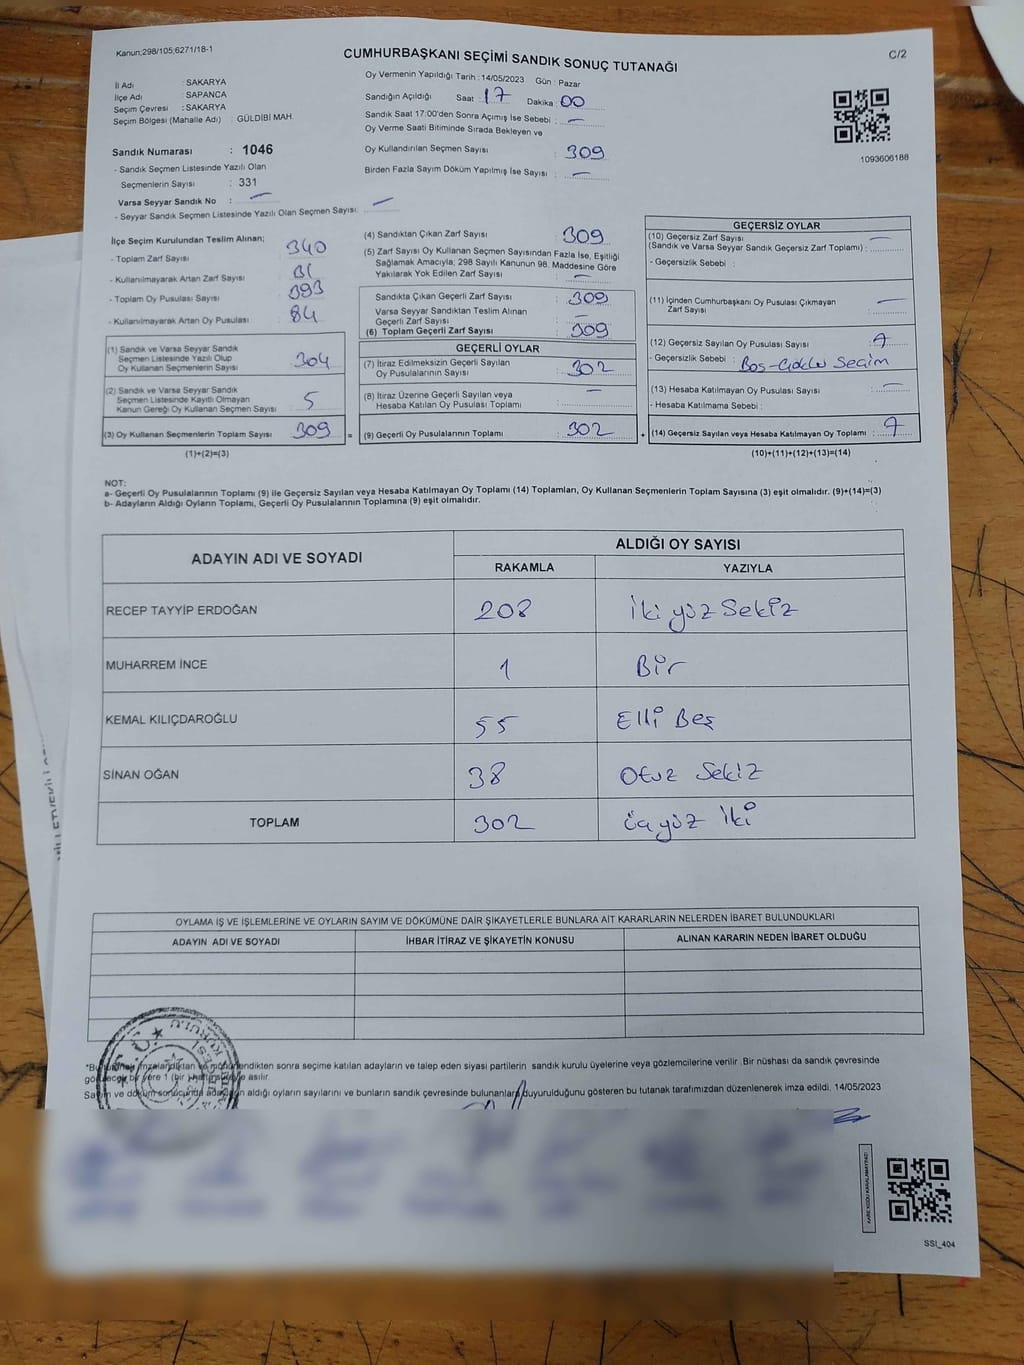 Kanun;298/105;6271/18-1
CUMHURBAŞKANI SEÇİMİ SANDIK SONUÇ TUTANAĞI
C/2
İl Adı : SAKARYA
İlçe Adı : SAPANCA
Seçim Çevresi : SAKARYA
Seçim Bölgesi (Mahalle Adı) : GÜLDİBİ MAH.
Sandık Numarası : 1046
- Sandık Seçmen Listesinde Yazılı Olan
Seçmenlerin Sayısı : 331
Varsa Seyyar Sandık No : —
- Seyyar Sandık Seçmen Listesinde Yazılı Olan Seçmen Sayısı: —
Oy Vermenin Yapıldığı Tarih : 14/05/2023 Gün : Pazar
Sandığın Açıldığı Saat : 17 Dakika : 00
Sandık Saat 17:00'den Sonra Açımış İse Sebebi : —
Oy Verme Saati Bitiminde Sırada Bekleyen ve
Oy Kullandırılan Seçmen Sayısı : 309
Birden Fazla Sayım Döküm Yapılmış İse Sayısı : —
1093606188
İlçe Seçim Kurulundan Teslim Alınan;
- Toplam Zarf Sayısı : 340
- Kullanılmayarak Artan Zarf Sayısı : 31
- Toplam Oy Pusulası Sayısı : 393
- Kullanılmayarak Artan Oy Pusulası : 84
(1) Sandık ve Varsa Seyyar Sandık
Seçmen Listesinde Yazılı Olup
Oy Kullanan Seçmenlerin Sayısı : 304
(2) Sandık ve Varsa Seyyar Sandık
Seçmen Listesinde Kayıtlı Olmayan
Kanun Gereği Oy Kullanan Seçmen Sayısı : 5
(3) Oy Kullanan Seçmenlerin Toplam Sayısı : 309
(1)+(2)=(3)
(4) Sandıktan Çıkan Zarf Sayısı : 309
(5) Zarf Sayısı Oy Kullanan Seçmen Sayısından Fazla İse, Eşitliği
Sağlamak Amacıyla; 298 Sayılı Kanunun 98. Maddesine Göre
Yakılarak Yok Edilen Zarf Sayısı : —
Sandıkta Çıkan Geçerli Zarf Sayısı : 309
Varsa Seyyar Sandıktan Teslim Alınan
Geçerli Zarf Sayısı : —
(6) Toplam Geçerli Zarf Sayısı : 309
GEÇERLİ OYLAR
(7) İtiraz Edilmeksizin Geçerli Sayılan
Oy Pusulalarının Sayısı : 302
(8) İtiraz Üzerine Geçerli Sayılan veya
Hesaba Katılan Oy Pusulası Toplamı : —
= (9) Geçerli Oy Pusulalarının Toplamı : 302
GEÇERSİZ OYLAR
(10) Geçersiz Zarf Sayısı : —
(Sandık ve Varsa Seyyar Sandık Geçersiz Zarf Toplamı) :
- Geçersizlik Sebebi :
(11) İçinden Cumhurbaşkanı Oy Pusulası Çıkmayan
Zarf Sayısı : —
(12) Geçersiz Sayılan Oy Pusulası Sayısı : 7
- Geçersizlik Sebebi : Boş-Çoklu Seçim
(13) Hesaba Katılmayan Oy Pusulası Sayısı : —
- Hesaba Katılmama Sebebi :
+ (14) Geçersiz Sayılan veya Hesaba Katılmayan Oy Toplamı : 7
(10)+(11)+(12)+(13)=(14)
NOT:
a- Geçerli Oy Pusulalarının Toplamı (9) ile Geçersiz Sayılan veya Hesaba Katılmayan Oy Toplamı (14) Toplamları, Oy Kullanan Seçmenlerin Toplam Sayısına (3) eşit olmalıdır. (9)+(14)=(3)
b- Adayların Aldığı Oyların Toplamı, Geçerli Oy Pusulalarının Toplamına (9) eşit olmalıdır.
ADAYIN ADI VE SOYADI
ALDIĞI OY SAYISI
RAKAMLA YAZIYLA
RECEP TAYYİP ERDOĞAN 208 İki yüz Sekiz
MUHARREM İNCE 1 Bir
KEMAL KILIÇDAROĞLU 55 Elli Beş
SİNAN OĞAN 38 Otuz Sekiz
TOPLAM 302 Üçyüz İki
OYLAMA İŞ VE İŞLEMLERİNE VE OYLARIN SAYIM VE DÖKÜMÜNE DAİR ŞİKAYETLERLE BUNLARA AİT KARARLARIN NELERDEN İBARET BULUNDUKLARI
ADAYIN ADI VE SOYADI İHBAR İTİRAZ VE ŞİKAYETİN KONUSU ALINAN KARARIN NEDEN İBARET OLDUĞU
*Bu imzalandıktan ve mühürlendikten sonra seçime katılan adayların ve talep eden siyasi partilerin sandık kurulu üyelerine veya gözlemcilerine verilir .Bir nüshası da sandık çevresinde
görülecek bir yere 1 (bir ) asılır.
Sayım ve döküm sonucunda aldığı oyların sayılarını ve bunların sandık çevresinde bulunanlara duyurulduğunu gösteren bu tutanak tarafımızdan düzenlenerek imza edildi. 14/05/2023
KARE KODU KARALAMAYINIZ!
SSI_404